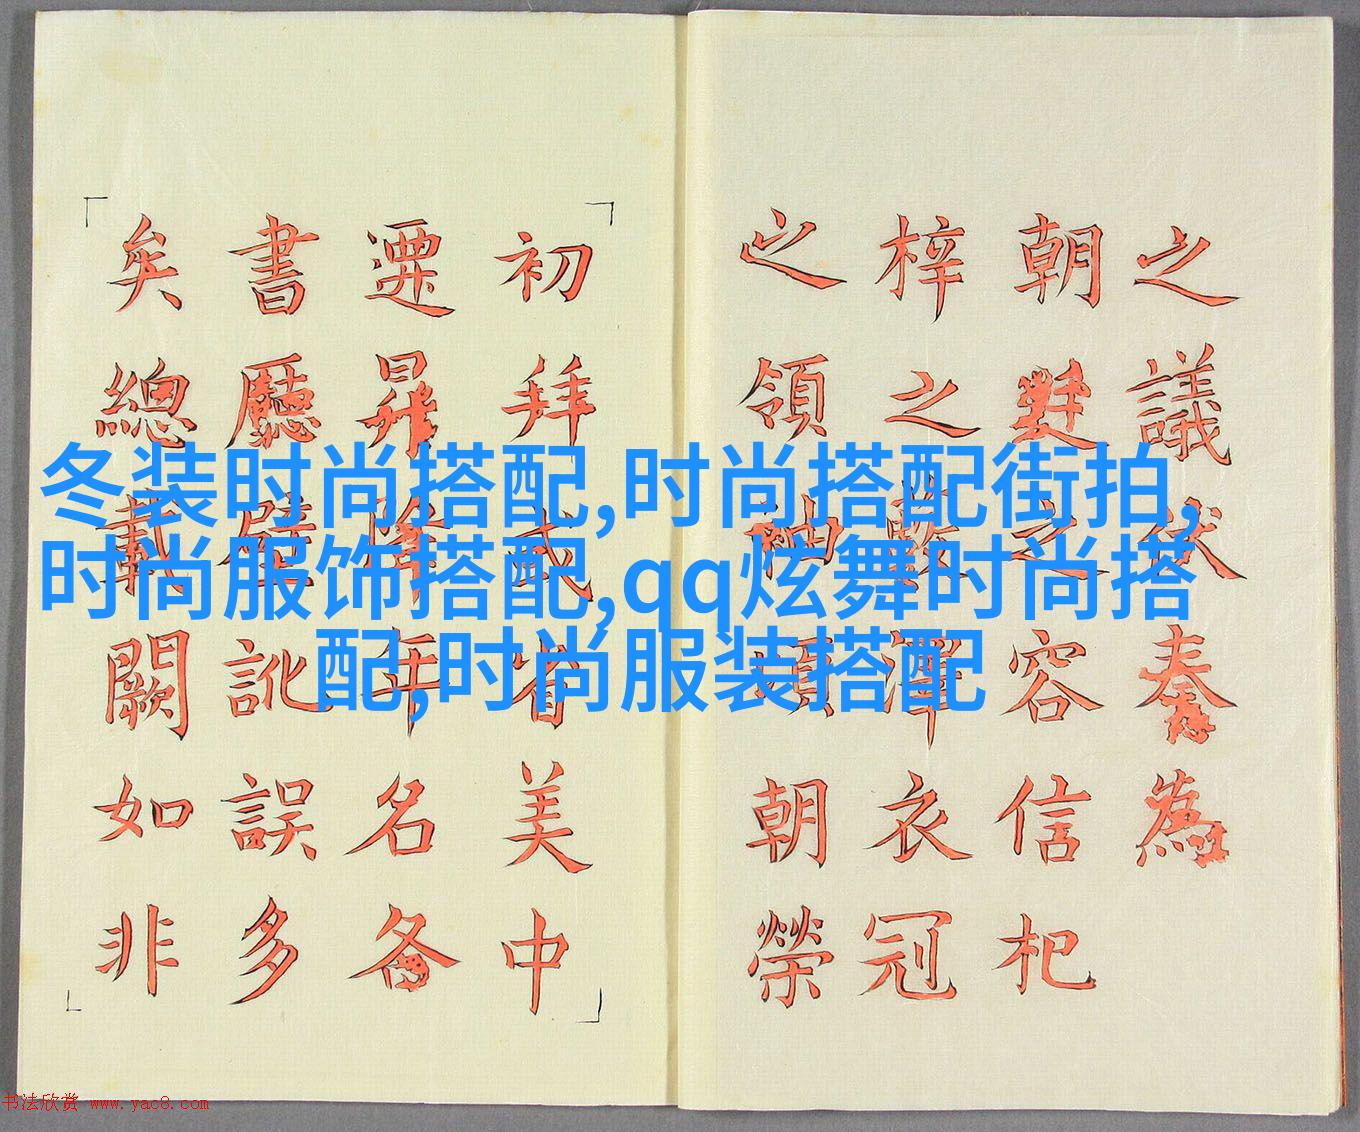 冬装时尚搭配,时尚搭配街拍,
时尚服饰搭配,qq炫舞时尚搭
配,时尚服装搭配
之議奏為
朝之容信杞
梓之澤衣冠
之領袖朝榮
初拜省美中
遷昇降年名
書廳壁訛誤多
矣總載闕如非
书法欣赏 www.yac8.com